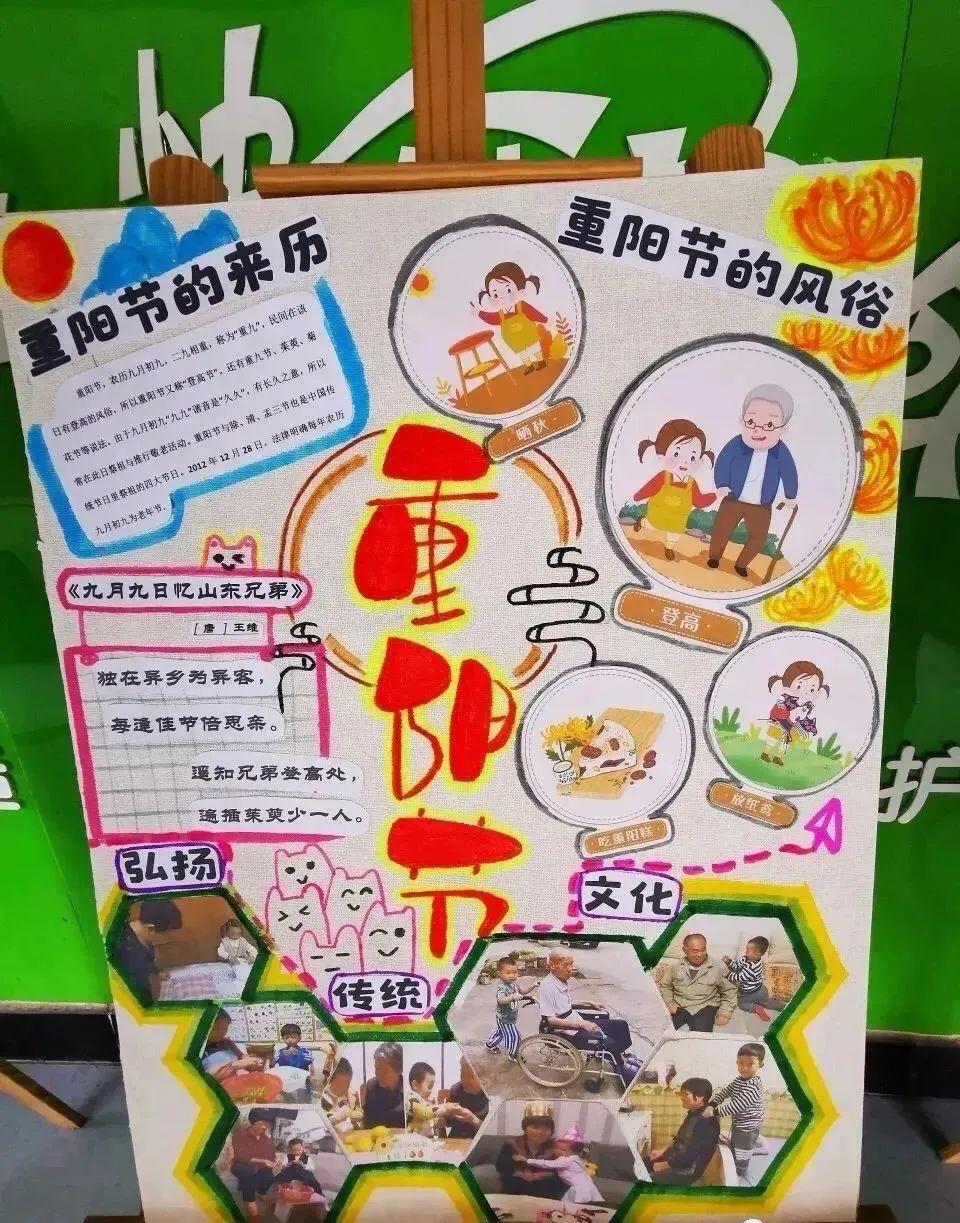 重阳节的来历
重阳节，农历九月初九，二九相重，称为“重九”，民间在该
日有登高的风俗，所以重阳节又称“登高节”，还有重九节、茱萸、菊
花节等说法。由于九月初九“九九”谐音是“久久”，有长久之意，所以
常在此日祭祖与推行敬老活动。重阳节与除、清、盂三节也是中国传
统节日里祭祖的四大节日。2012年12月28日，法律明确每年农历
九月初九为老年节.
《九月九日忆山东兄弟》
［唐］王维
独在异乡为异客，
每逢佳节倍思亲。
遥知兄弟登高处，
遍插茱萸少一人。
重阳节
重阳节的风俗
晒秋
登高
吃重阳糕
放纸鸢
弘扬
传统
文化
护